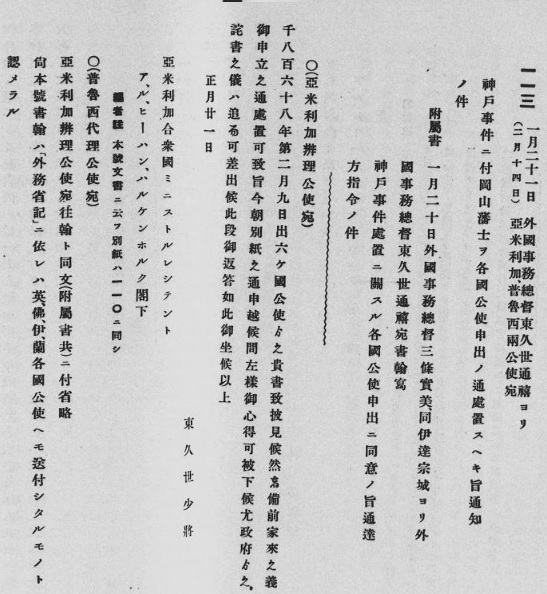 一一三 一月二十一日 外國事務總督東久世通禧ヨリ
(二月十四日) 亞米利加普魯西兩公使宛
神戸事件ニ付岡山藩士ヲ各國公使申出ノ通處置スヘキ旨通知
ノ件
附屬書 一月二十日外國事務總督三條實美、同伊達宗城ヨリ外
國事務總督東久世通禧宛書翰寫
神戸事件處置ニ關スル各國公使申出ニ同意ノ旨通達
方指令ノ件
〇(亞米利加辨理公使宛)
千八百六十八年第二月九日出六ケ國公使ゟ之貴書致披見候然者備前家來之義
御申立之通處置可致旨今朝別紙之通申越候間左樣御心得可被下候尤政府ゟ之
詫書之儀ハ追而可差出候此段御返答如此御坐候以上
正月廿一日
東久世少將
亞米利加合衆國ミニストルレシテント
ア、ル、ヒー、ハン、ハルケンホルク閣下
編者註 本號文書ニ云フ別紙ハ一一〇ニ同シ
〇(普魯西代理公使宛)
亞米利加辨理公使宛往翰ト同文(附屬書共)ニ付省略
尙本號書翰ハ「外務省記」ニ依レハ英、佛、伊、蘭各國公使ヘモ送付シタルモノト
認メラル